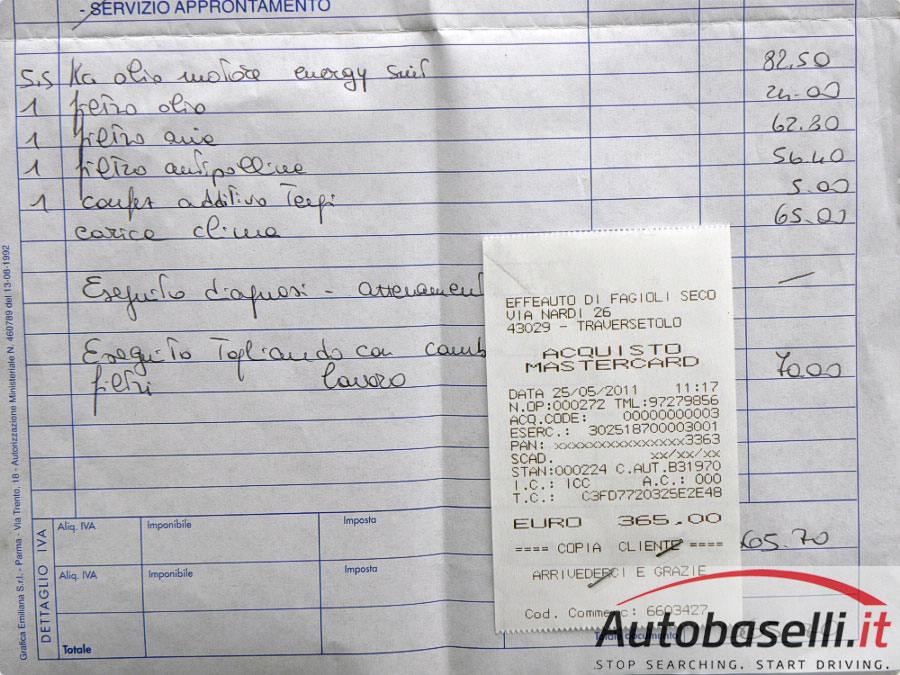 - SERVIZIO APPRONTAMENTO
5,5 Kg olio motore energy 82,50
1 filtro olio 24.00
1 filtro aria 62.80
1 filtro antipolline 56.40
1 confez additivo Tergi 5.00
carica clima 65.00
Eseguito diagnosi - —
Eseguito Tagliando con
filtri lavoro 70.00
EFFEAUTO DI FAGIOLI SECO
VIA NARDI 26
43029 - TRAVERSETOLO
ACQUISTO
MASTERCARD
DATA 25/05/2011 11:17
N.OP:000272 TML:97279856
ACQ.CODE: 00000000003
ESERC.: 302518700003001
PAN: xxxxxxxxxxxxxxxx3363
SCAD. xx/xx/xx
STAN:000224 C.AUT.B31970
I.C.: ICC A.C.: 000
T.C.: C3FD7720325E2E48
EURO 365.00
==== COPIA CLIENTE ====
ARRIVEDERCI E GRAZIE
Cod. Commerc: 6603427
65.70
DETTAGLIO IVA
Aliq. IVA Imponibile Imposta
Aliq. IVA Imponibile Imposta
Totale
Totale documento
Grafica Emiliana S.r.l. - Parma - Via Trento, 18 - Autorizzazione Ministeriale N. 460789 del 13-08-1992
Autobaselli.it
STOP SEARCHING. START DRIVING.